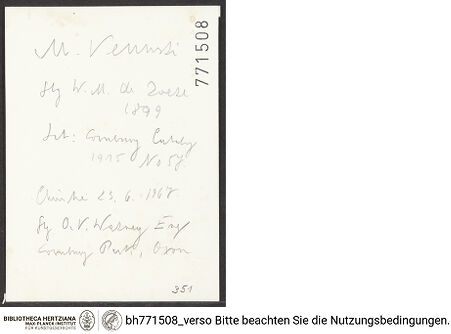 M. Venusti
771508
Slg W. M. de Zoete
1899
Lit: Cornbury Catalog
1915 No 57.
Christie 23. 6. 1967
Slg O. V. Watney Esq
Cornbury Park, Oxon
351
BIBLIOTHECA HERTZIANA
MAX-PLANCK-INSTITUT
FÜR KUNSTGESCHICHTE
bh771508_verso Bitte beachten Sie die Nutzungsbedingungen.